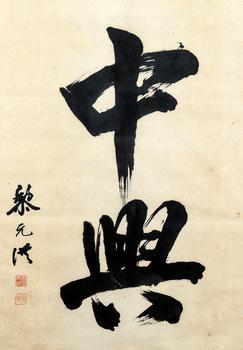 中興
黎元洪